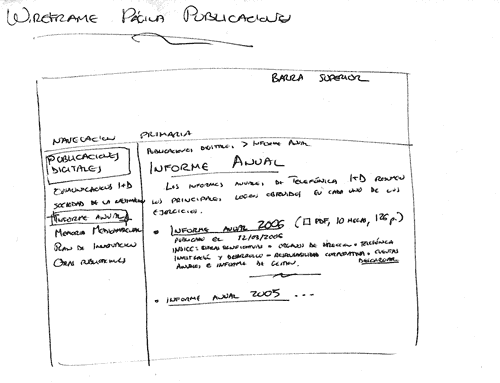 WIREFRAME PÁGINA PUBLICACIONES
BARRA SUPERIOR
NAVEGACION PRIMARIA
PUBLICACIONES DIGITALES
COMUNICACIONES I+D
SOCIEDAD DE LA INFORMACION
INFORME ANUAL
MEMORIA
PLAN DE INNOVACION
OTRAS PUBLICACIONES
PUBLICACIONES DIGITALES > INFORME ANUAL
INFORME ANUAL
LOS INFORMES ANUALES DE TELEFÓNICA I+D RESUMEN
LOS PRINCIPALES LOGROS OBTENIDOS EN CADA UNO DE LOS
EJERCICIOS.
• INFORME ANUAL 2006 (PDF, 10 MEGAS, 126 p.)
PUBLICADO EL 12/03/2006
INDICE: • ORGANOS DE DIRECCION • TELEFÓNICA
INVESTIGACIÓN Y DESARROLLO • RESPONSABILIDAD CORPORATIVA • CUENTAS
ANUALES E INFORME DE GESTION. DESCARGAR
• INFORME ANUAL 2005 ...